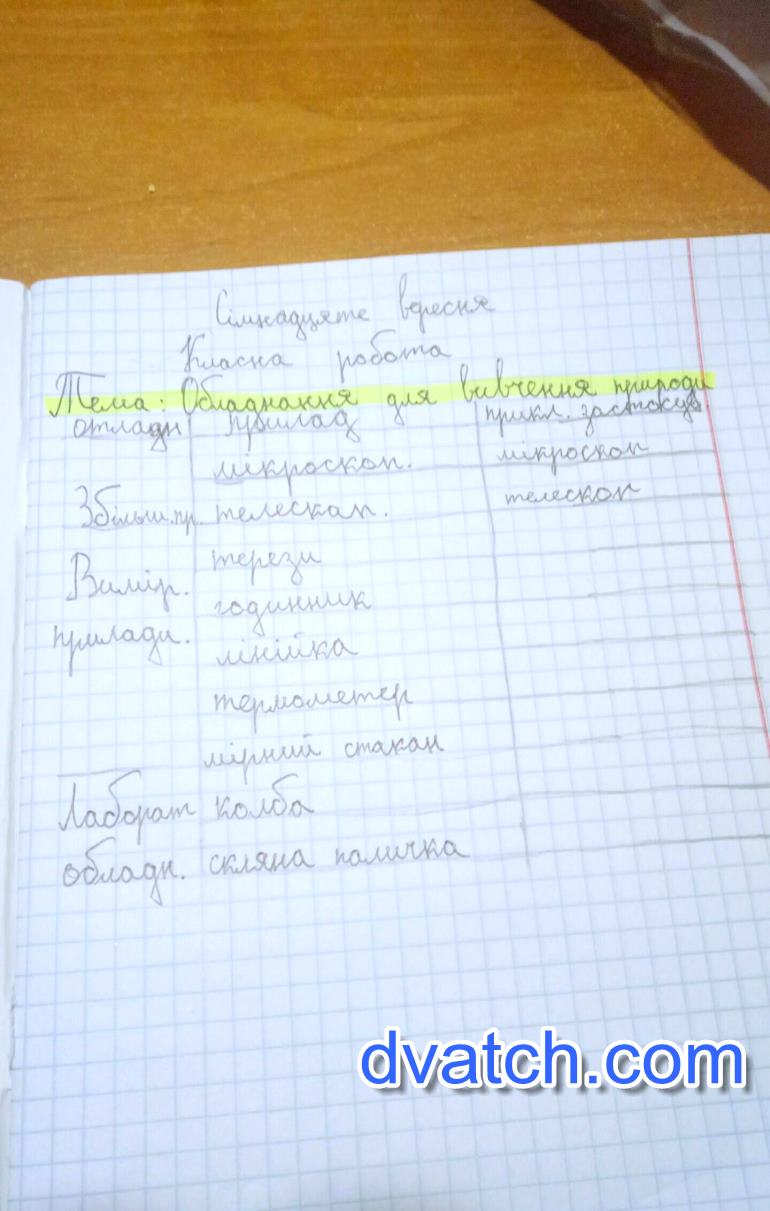 Сімнадцяте вересня
Класна робота
Тема: Обладнання для вивчення природи
прилад прикл. застосув.
мікроскоп. мікроскоп
Збільш.пр. телескап. телескоп
терези
Вимір. годинник
прилади. лінійка
термометер
мірний стакан
Лаборат колба
обладн. скляна паличка
dvatch.com